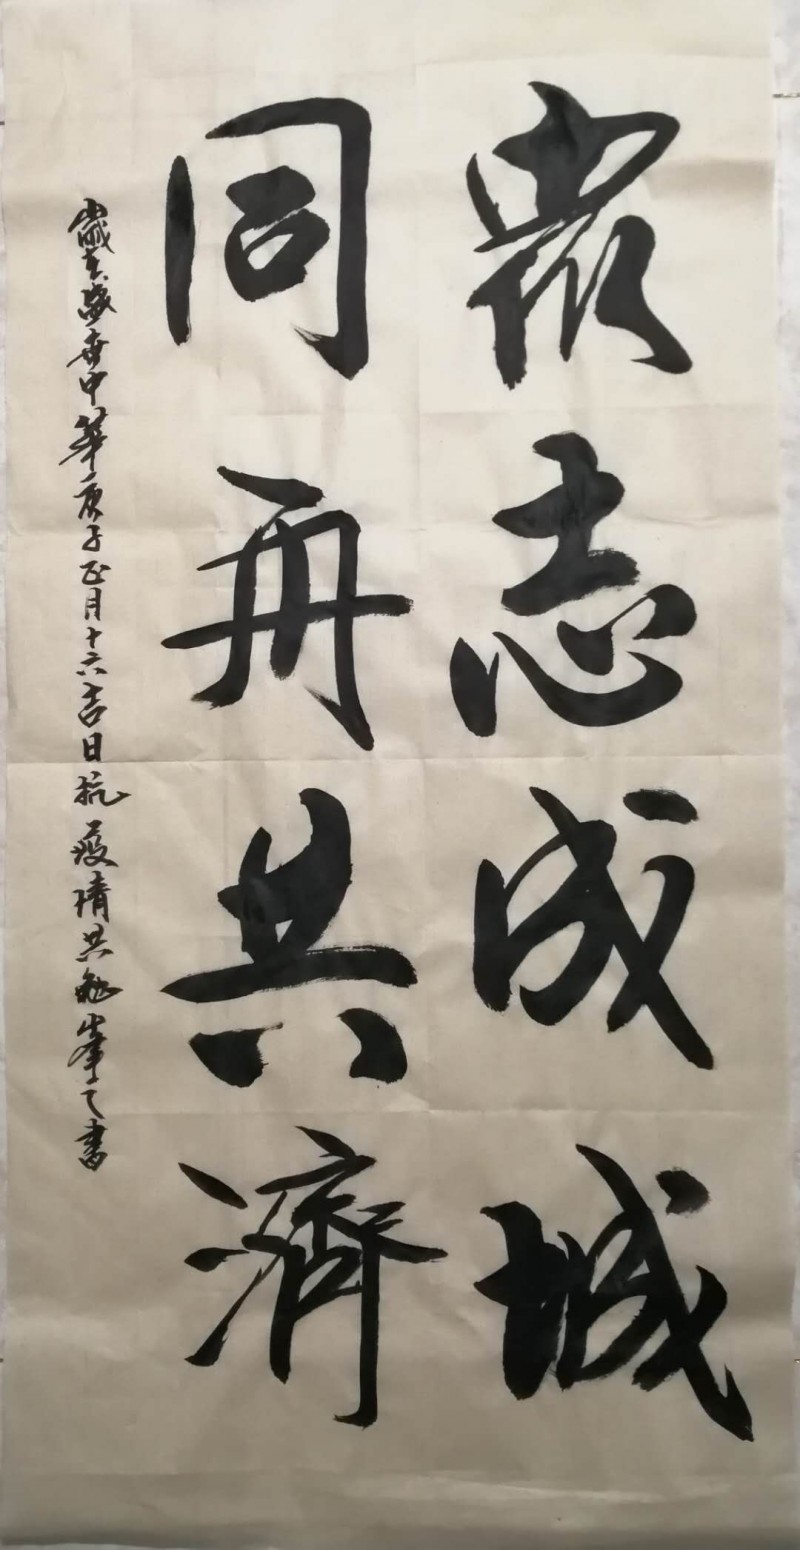 眾志成城
同舟共濟
歲在盛世中華庚子正月十六吉日抗疫情共勉峯之書